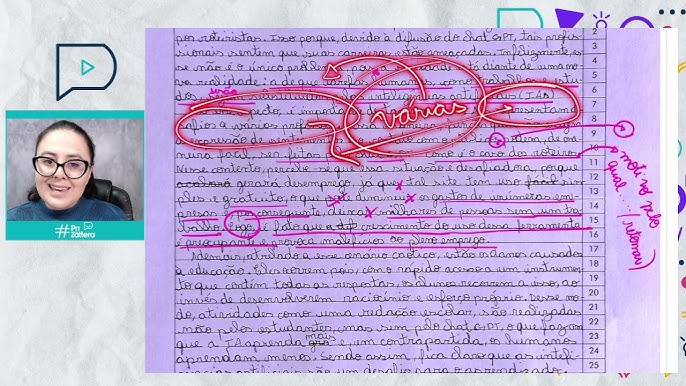 por roteiristas. Isso porque, devido à difusão do chat GPT, tais profis-
sionais sentem que suas carreiras estão ameaçadas. Infelizmente, es-
se não é o único problema, pois a sociedade está diante de uma no-
va realidade: a de que tarefas humanas, como trabalhos, estu-
dos
serão
inteligências artificiais (IAs)
várias
é importante
desafios a várias
expressão de sentimentos
podem, de ma-
neira fácil, ser feitas
como é o caso dos roteiros
Nesse contexto, percebe-se que essa situação é desafiadora, porque
gerará desemprego, já que tal site tem uso sim-
ples e gratuito, o que pode diminuir os gastos de inúmeras em-
presas
conseguinte, deixar milhares de pessoas sem um tra-
balho. Logo, é fato que o crescimento do uso dessa ferramenta
é preocupante e provoca malefícios ao pleno emprego.
Ademais, atrelado a esse cenário caótico, estão os danos causados
à educação. Eles ocorrem pois, com o rápido acesso a um instrumen-
to que contém todas as respostas, os alunos recorrem a isso, ao
invés de desenvolverem raciocínio e esforço próprio. Desse mo-
do, atividades como uma redação escolar, são realizadas
não pelos estudantes, mas sim pelo chat GPT, o que faz com
que a IA aprenda mais e, em contrapartida, os humanos
aprendam menos. Sendo assim, fica claro que as inteli-
gências artificiais são um desafio para o aprendizado.
2
3
4
5
6
7
8
9
10
11
12
13
14
15
16
17
18
19
20
21
22
23
24
25
motivo pelo
qual... /
(retomar)
#Pn
Zattera